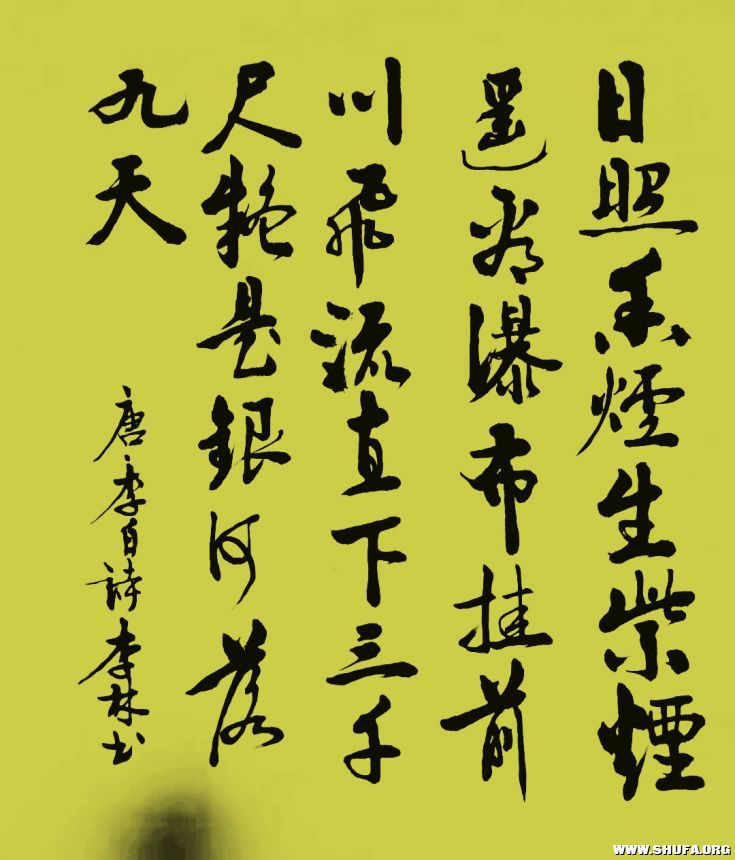 日照香煙生紫煙
遙看瀑布挂前
川飛流直下三千
尺疑是銀河落
九天
唐李白詩李林书
WWW.SHUFA.ORG